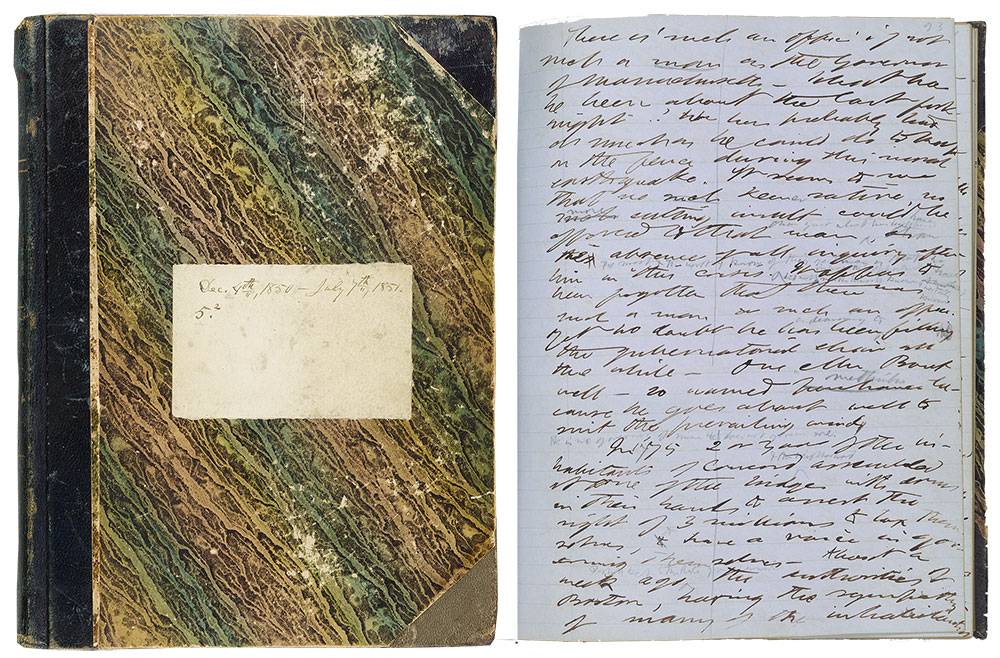 Dec. 4th, 1850 – July 7th, 1851.
5.2
93
There is such an office if not
such a man as the Governor
of Massachusetts – What has
he been about the last fort-
night? He has probably had
as much as he could do to keep
on the fence during this moral
earthquake. It seems to me
that no such keener satire, no
more
such cutting insult could be
offered to that man, as
the absence of all inquiry after
him in this crisis. It appears to
have been forgotten that there was
such a man or such an office.
Yet no doubt he has been filling
the gubernatorial chair all
the while – One Mr Bout
methinks
well – so named perchance be-
cause he goes about well to
suit the prevailing wind
In 1775 2 or 3 hund of the in-
habitants of Concord assembled
at one of the bridges with arms
in their hands to assert the
right of 3 millions to tax them
selves, & have a voice in gov
erning themselves – About a
week ago the authorities of
Boston, having the sympathy
of many of the inhabitants